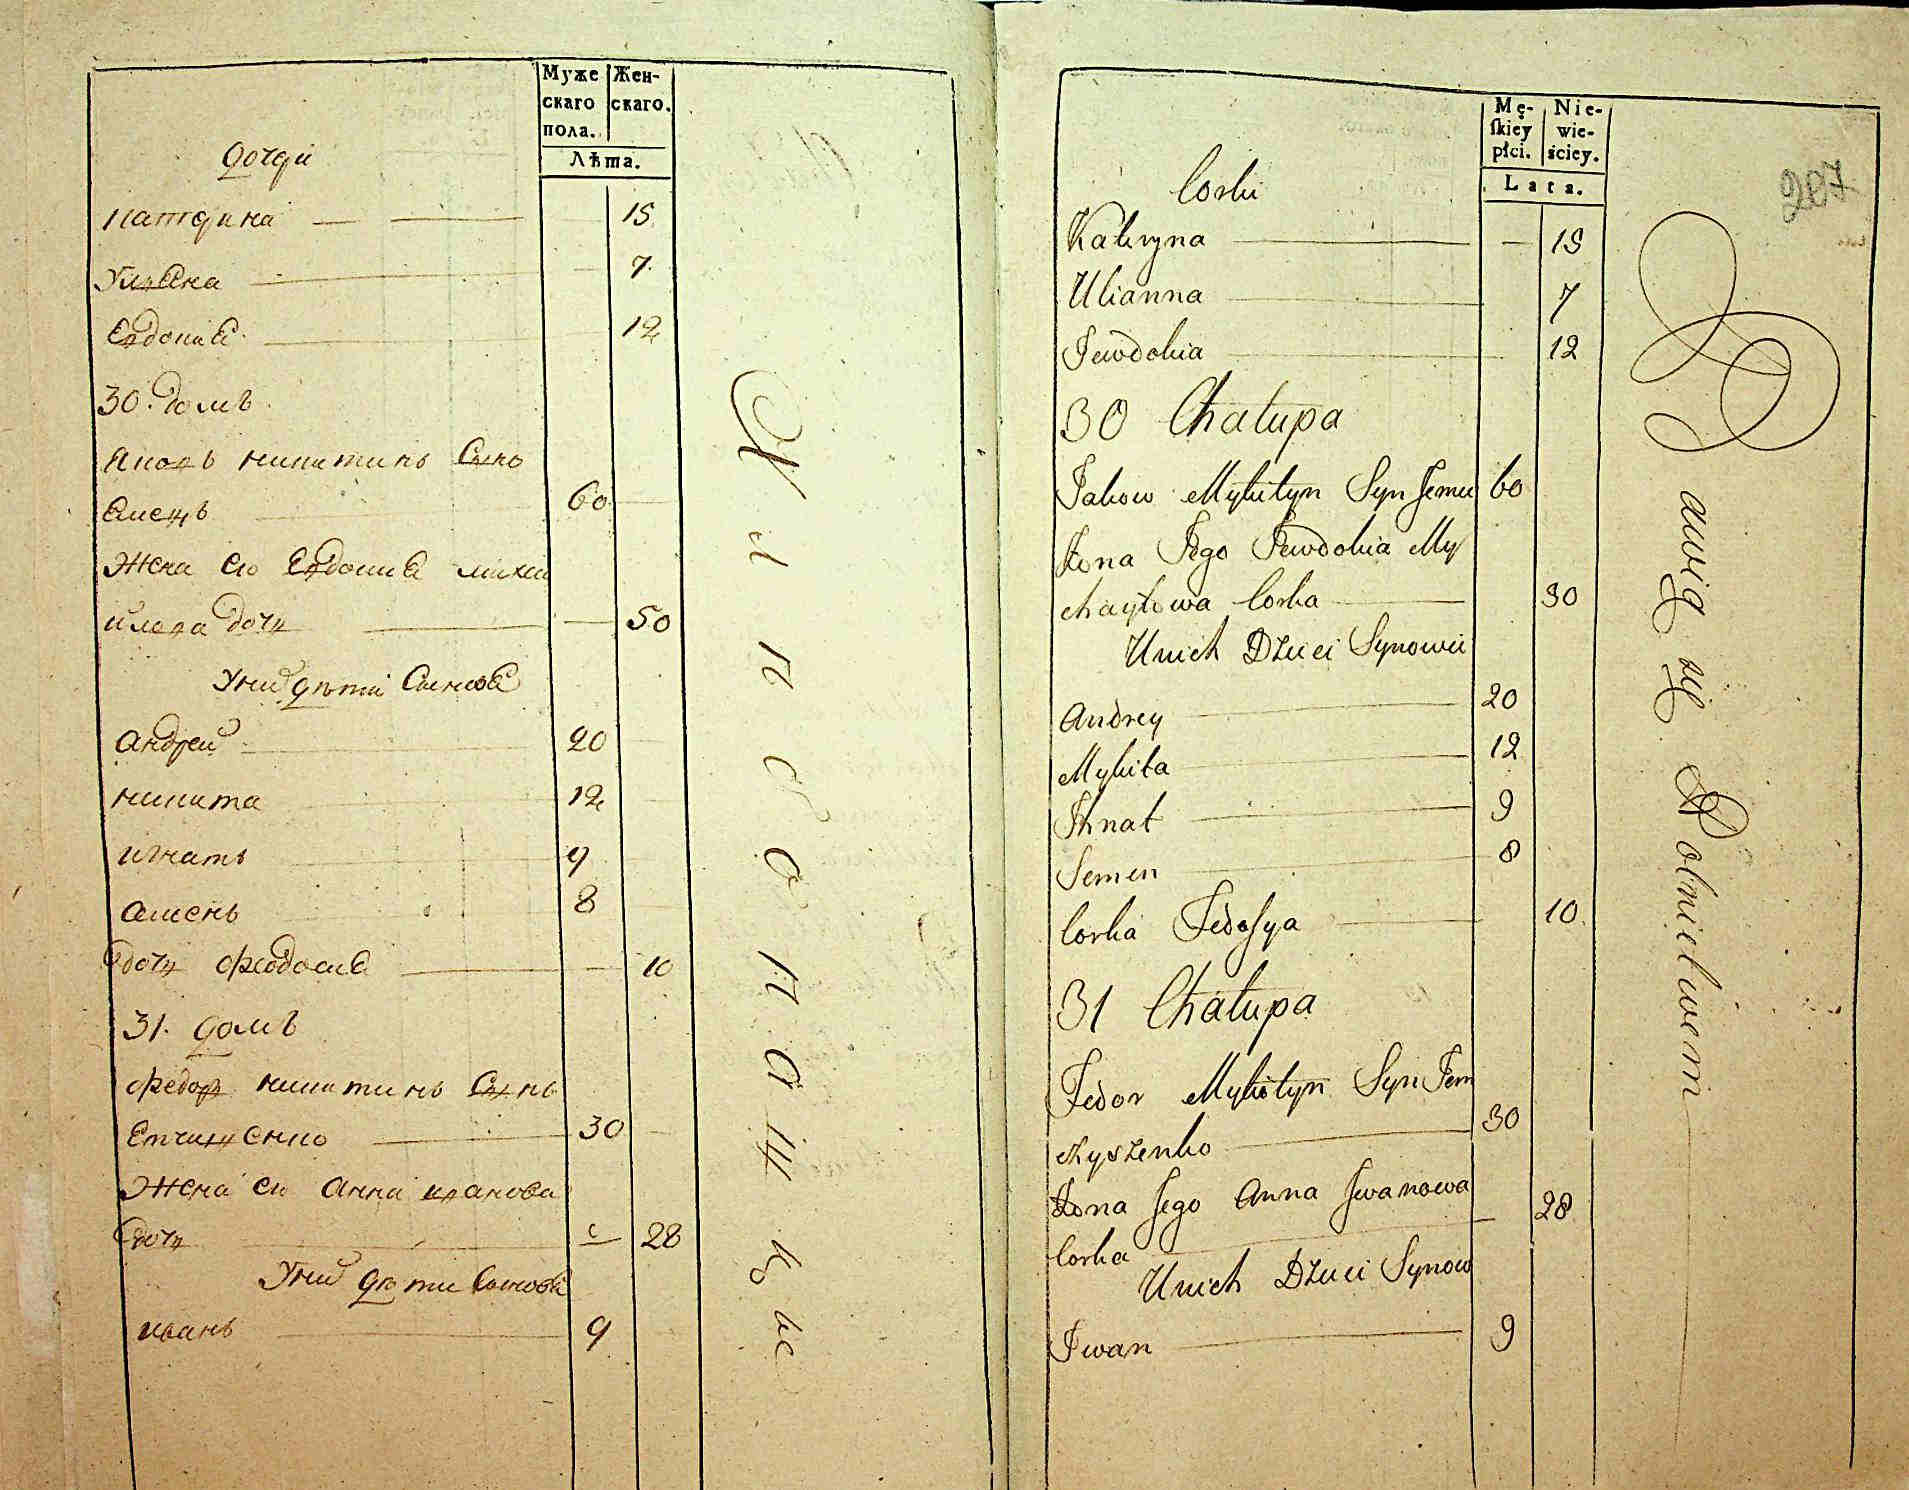 Муже
скаго
пола.
Жен-
скаго.
Лѣта.
дочери
катерина 15
Улияна 7
Евдокия 12
30. домъ
Яковъ никитинъ Сынъ
60
Жена ево Евдокия михаи
илова дочь 50
Уних дѣти Сыновя
Андрей 20
никита 12
игнатъ 9
Симень 8
дочь феодосия 10
31. домъ
федор никитинъ Сынъ
30
Жена ево Анна иванова
дочь 28
Уних дѣти Сыновя
иванъ 9
Хлѣбопашцы
Mę-
skiey
płci.
Nie-
wie-
ściey.
Lata.
207
Corki
Kateryna 15
Ulianna 7
Jewdokia 12
30 Chałupa
Jakow Mykityn Syn Jemu 60
Żona Jego Jewdokia My
chayłowa Corka 30
Unich Dzieci Synowie
Andrey 20
Mykita 12
Ihnat 9
Semen 8
Corka Fedosya 10
31 Chałupa
Fedor Mykityn Syn Jem
czyszenko 30
Żona Jego Anna Jwanowa 28
Corka
Unich Dzieci Synow
Iwan 9
Bawią się Rolnictwem